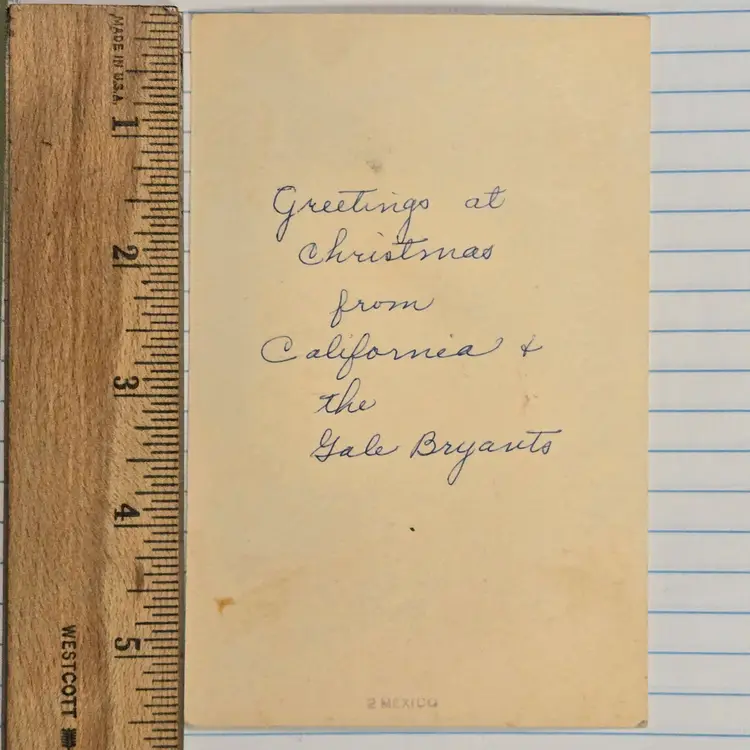 MADE IN U.S.A.
1
2
3
4
5
WESTCOTT
Greetings at
Christmas
from
California &
the
Gale Bryants
2 MEXICO